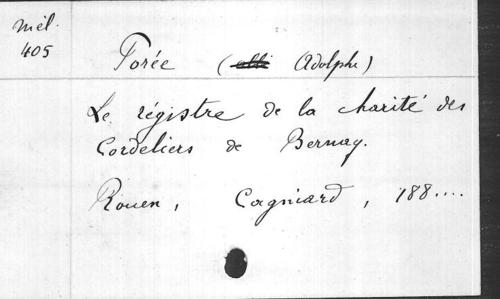 Mél.
405
Porée (Adolphe)
Le régistre de la charité des
Cordeliers de Bernay.
Rouen, Cagniard, 188....